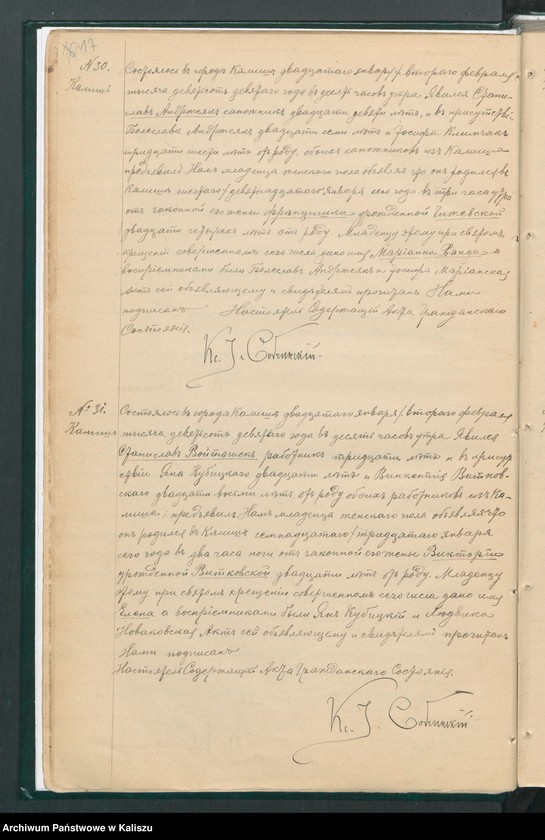 N 30.
Калишъ
Состоялось въ городѣ Калишѣ двадцатаго января / второго февраля
тысяча девятьсотъ девятаго года въ десять часовъ утра. Явился Стани-
славъ Андржеякъ сапожникъ двадцати девяти лѣтъ, и въ присутствіи
Болеслава Андржеяка двадцати семи лѣтъ и Іосифа
тридцати шести лѣтъ отъ роду, обоихъ сапожниковъ изъ Калиша
предъявилъ Намъ младенца женскаго пола объявляя что онъ родился въ
Калишѣ шестаго / девятнадцатаго января сего года въ три часа утра
отъ законной его жены Францишки урожденной
двадцати четырехъ лѣтъ отъ роду. Младенцу этому при святомъ
крещеніи совершенномъ сего числа дано имя Маріанна а
воспріемниками были Болеславъ Андржеякъ и Маріанская
Актъ сей объявляющему и свидѣтелямъ прочитанъ Нами
подписанъ Настоятель Содержащій Акты Гражданскаго
Состоянія.
Кс. І. Собчинскій.
№ 31.
Калишъ
Состоялось въ городѣ Калишѣ двадцатаго января / второго февраля
тысяча девятьсотъ девятаго года въ десять часовъ утра. Явился
Станиславъ Войташекъ работникъ тридцати лѣтъ и въ присут-
ствіи Яна Кубицкаго двадцати лѣтъ и Викентія Витков-
скаго двадцати восьми лѣтъ отъ роду обоихъ работниковъ изъ Ка-
лиша; предъявилъ Намъ младенца женскаго пола объявляя что
онъ родился въ Калишѣ семнадцатаго / тридцатаго января
сего года въ два часа ночи отъ законной его жены Викторіи
урожденной Витковской двадцати лѣтъ отъ роду. Младенцу
этому при святомъ крещеніи совершенномъ сего числа дано имя
Елена а воспріемниками были Янъ Кубицкій и Людвика
Новаковская Актъ сей объявляющему и свидѣтелямъ прочитанъ
Нами подписанъ
Настоятель Содержащій Акты Гражданскаго Состоянія.
Кс. І. Собчинскій.
Archiwum Państwowe w Kaliszu